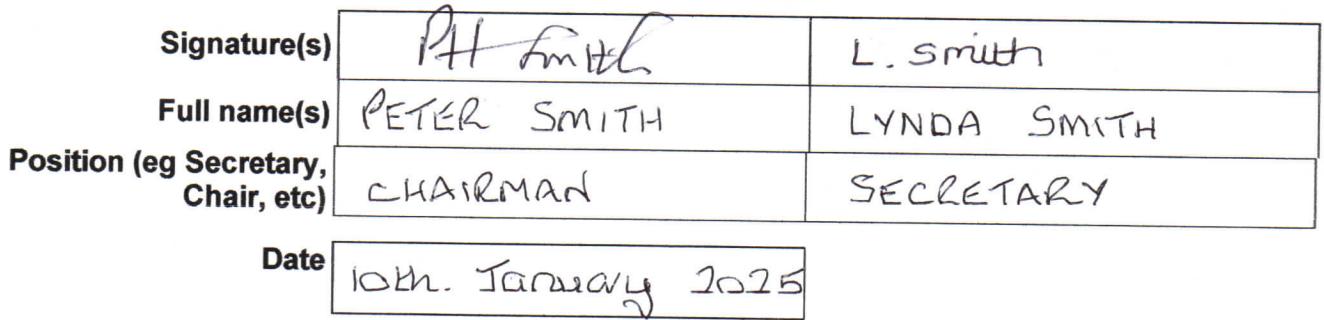 Signature(s) PH Smith L. Smith
Full name(s) PETER SMITH LYNDA SMITH
Position (eg Secretary,
Chair, etc) CHAIRMAN SECRETARY
Date 10th. January 2025